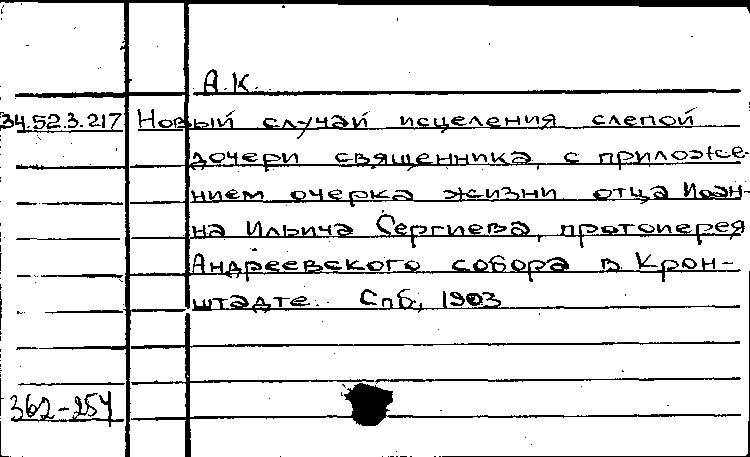 А.К.
34.52.3.217 Новый случай исцеления слепой
дочери священника, с приложе-
нием очерка жизни отца Иоан-
на Ильича Сергиева, протоиерея
Андреевского собора в Крон-
штадте. Спб., 1903
362-254